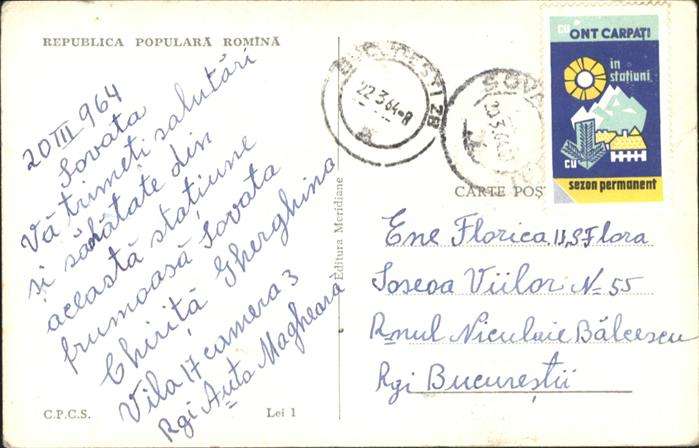 REPUBLICA POPULARĂ ROMÎNĂ
20 III 964
Sovata
Vă trimeti salutări
și sănătate din
această stațiune
frumoasă Sovata
Chiriță Gherghina
Vila 17 camera 3
Rgi Auto Magheara
C.P.C.S.
Lei 1
Editura Meridiane
BUCUREȘTI 28
22.3.64-8
SOVATA
CU
ONT CARPAȚI
în
stațiuni
CU
sezon permanent
CARTE POȘ
Ene Florica
Soseoa Viilor N=55
Ronul Niculaie Bălcescu
Rgi Bucureștii